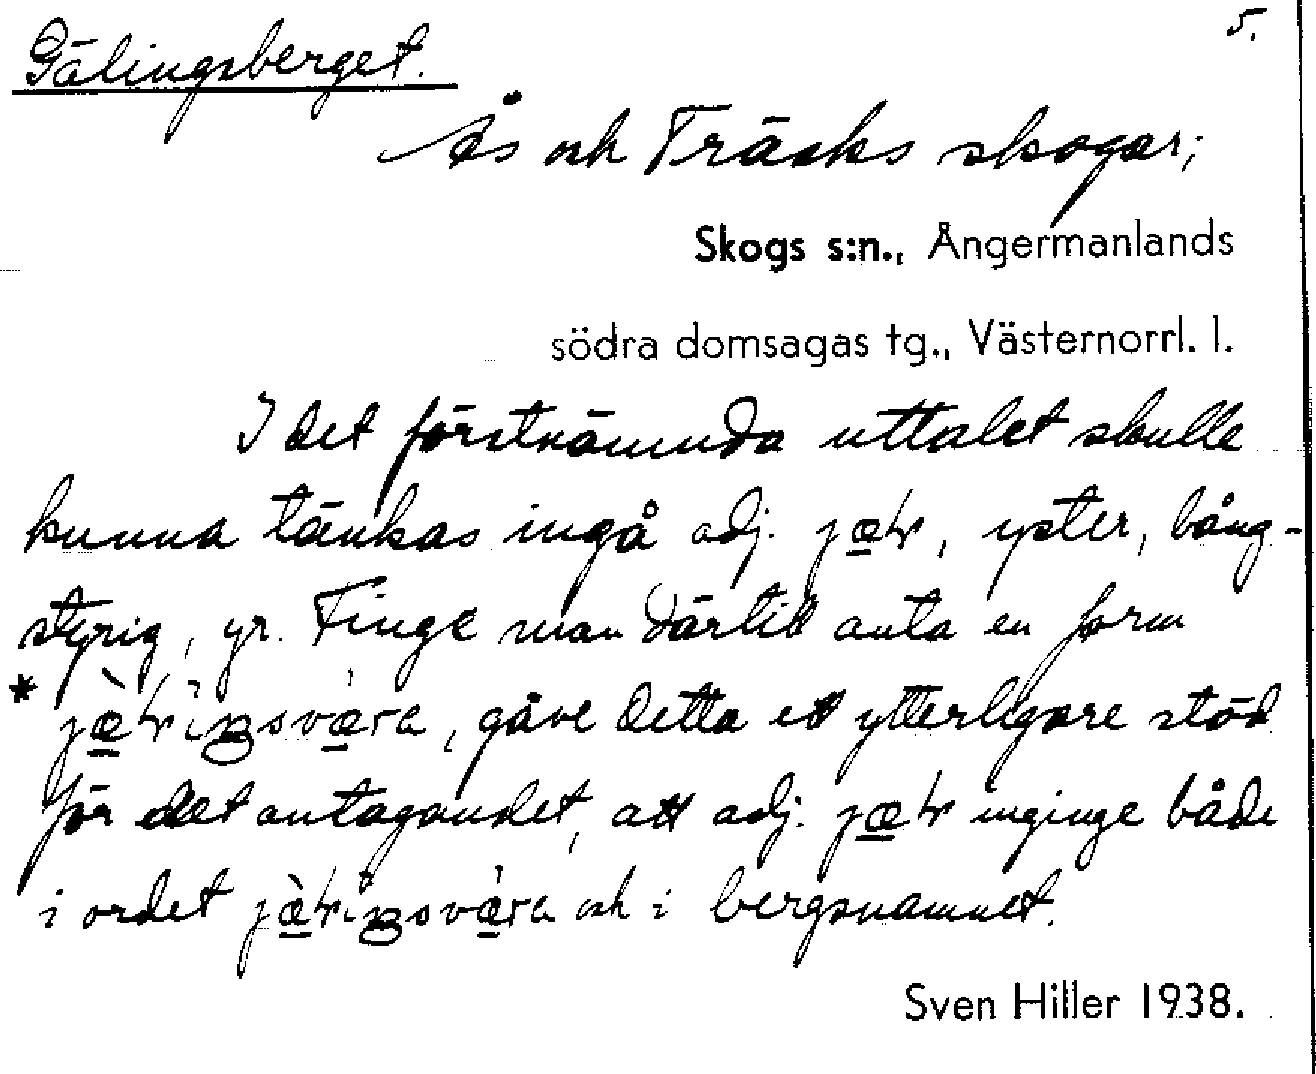 5.
Gälingsberget.
Ås och Träsks skogar;
Skogs s:n., Ångermanlands
södra domsagas tg., Västernorrl. l.
I det förstnämnda uttalet skulle
kunna tänkas ingå adj. , yster, bång-
styrig, yr. Finge man därtill anta en form
* , gåve detta ett ytterligare stöd
för det antagandet, att adj. inginge både
i ordet och i bergsnamnet.
Sven Hiller 1938.